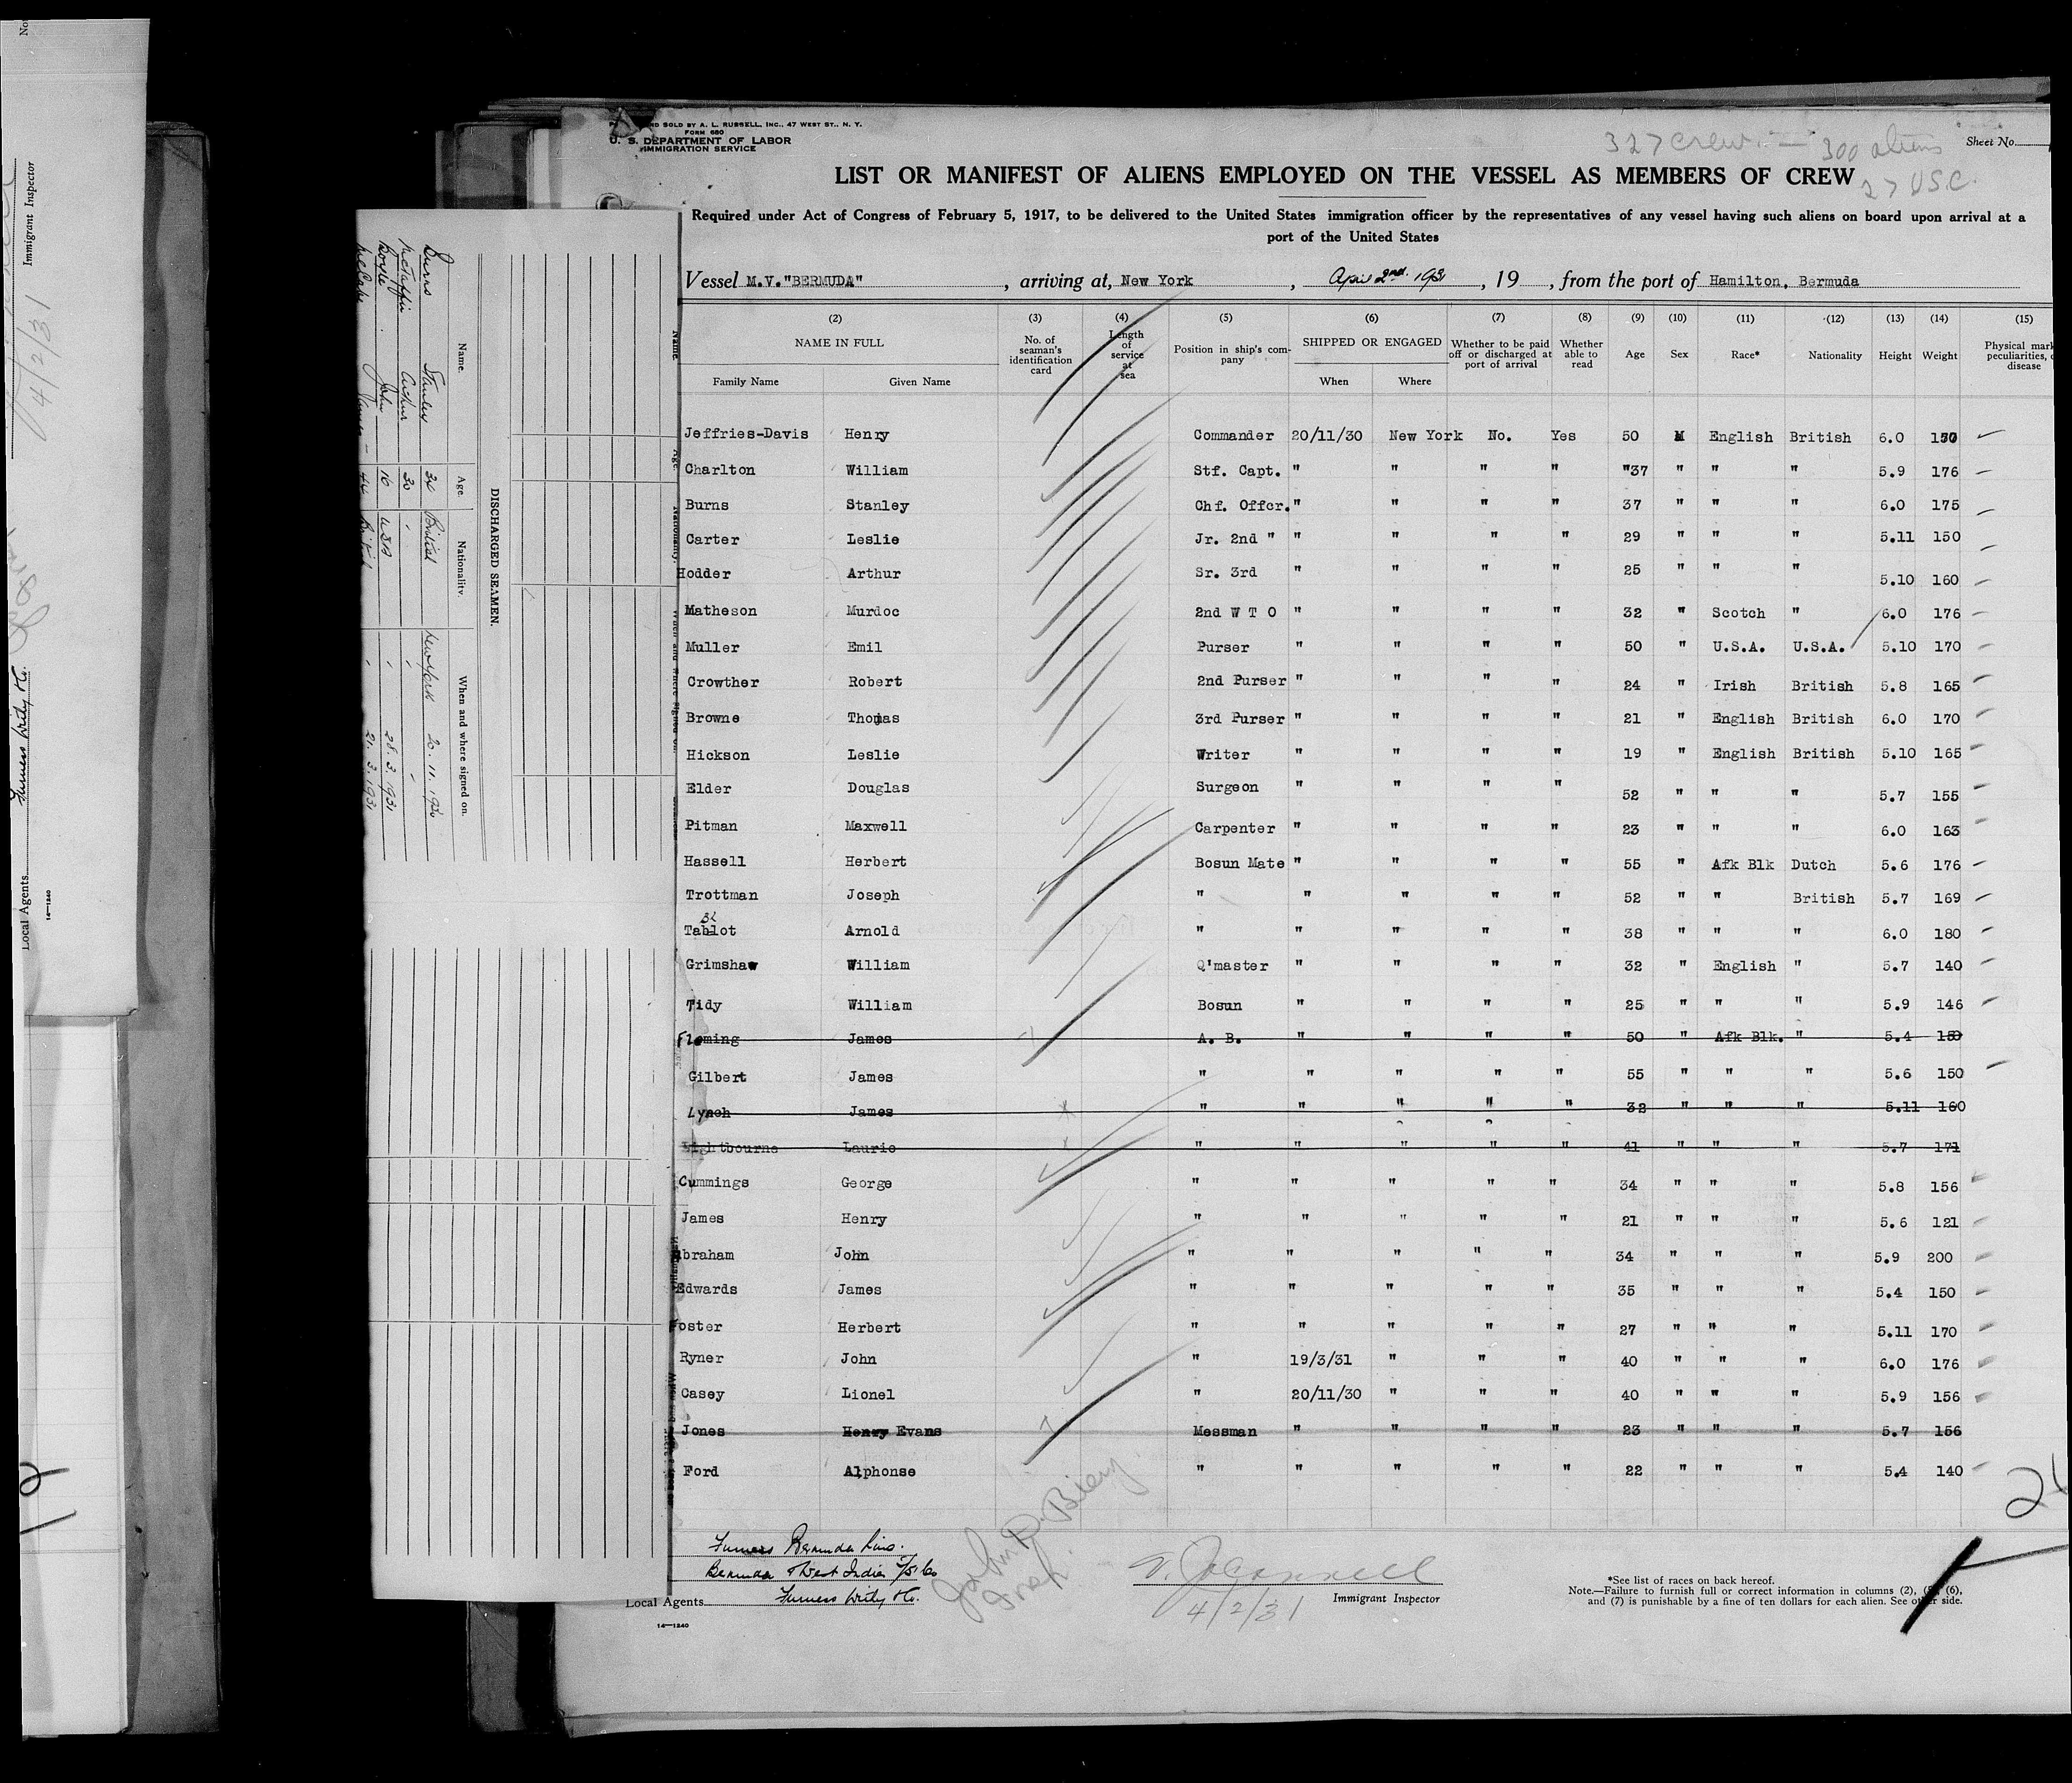 Immigrant Inspector
4/2/31
Local Agents
Furness Withy & Co.
14—1240
DISCHARGED SEAMEN.
Name. Age. Nationality. When and where signed on.
Burns Stanley 36 British New York 20.11.1930
Arthur 30 " " "
Boyle John 16 USA " 28.3.1931
44 British " 21.3.1931
AND SOLD BY A. L. RUSSELL, INC., 47 WEST ST., N. Y.
FORM 680
U. S. DEPARTMENT OF LABOR
IMMIGRATION SERVICE
327 crew. — 300 aliens
27 U.S.C.
Sheet No.
LIST OR MANIFEST OF ALIENS EMPLOYED ON THE VESSEL AS MEMBERS OF CREW
Required under Act of Congress of February 5, 1917, to be delivered to the United States immigration officer by the representatives of any vessel having such aliens on board upon arrival at a
port of the United States
Vessel M.V."BERMUDA" , arriving at, New York , April 2nd. 1931 , 19 , from the port of Hamilton, Bermuda
(2) (3) (4) (5) (6) (7) (8) (9) (10) (11) (12) (13) (14) (15)
NAME IN FULL
Family Name Given Name
No. of seaman's identification card
Length of service at sea
Position in ship's company
SHIPPED OR ENGAGED
When Where
Whether to be paid off or discharged at port of arrival
Whether able to read
Age Sex Race* Nationality Height Weight
Physical mar
peculiarities,
disease
Jeffries-Davis Henry Commander 20/11/30 New York No. Yes 50 M English British 6.0 170
Charlton William Stf. Capt. " " " " "37 " " " 5.9 176
Burns Stanley Chf. Offcr. " " " " 37 " " " 6.0 175
Carter Leslie Jr. 2nd " " " " " 29 " " " 5.11 150
Hodder Arthur Sr. 3rd " " " " 25 " " " 5.10 160
Matheson Murdoc 2nd W T O " " " " 32 " Scotch " 6.0 176
Muller Emil Purser " " " " 50 " U.S.A. U.S.A. 5.10 170
Crowther Robert 2nd Purser " " " " 24 " Irish British 5.8 165
Browne Thomas 3rd Purser " " " " 21 " English British 6.0 170
Hickson Leslie Writer " " " " 19 " English British 5.10 165
Elder Douglas Surgeon " " " " 52 " " " 5.7 155
Pitman Maxwell Carpenter " " " " 23 " " " 6.0 163
Hassell Herbert Bosun Mate " " " " 55 " Afk Blk Dutch 5.6 176
Trottman Joseph " " " " " 52 " " British 5.7 169
Tablot Arnold " " " " " 38 " " " 6.0 180
Grimshaw William Q'master " " " " 32 " English " 5.7 140
Tidy William Bosun " " " " 25 " " " 5.9 146
Fleming James A. B. " " " " 50 " Afk Blk. " 5.4 150
Gilbert James " " " " " 55 " " " 5.6 150
Lynch James " " " " " 32 " " " 5.11 160
Lightbourne Laurie " " " " " 41 " " " 5.7 171
Cummings George " " " " " 34 " " " 5.8 156
James Henry " " " " " 21 " " " 5.6 121
Abraham John " " " " " 34 " " " 5.9 200
Edwards James " " " " " 35 " " " 5.4 150
Foster Herbert " " " " " 27 " " " 5.11 170
Ryner John " 19/3/31 " " " 40 " " " 6.0 176
Casey Lionel " 20/11/30 " " " 40 " " " 5.9 156
Jones Henry Evans Messman " " " " 23 " " " 5.7 156
Ford Alphonse " " " " " 22 " " " 5.4 140
Furness Bermuda Line.
Bermuda & West Indies S/S Co
Local Agents Furness Withy & Co.
14—1240
John P.
4/2/31
Immigrant Inspector
*See list of races on back hereof.
Note.—Failure to furnish full or correct information in columns (2), (5), (6),
and (7) is punishable by a fine of ten dollars for each alien. See other side.